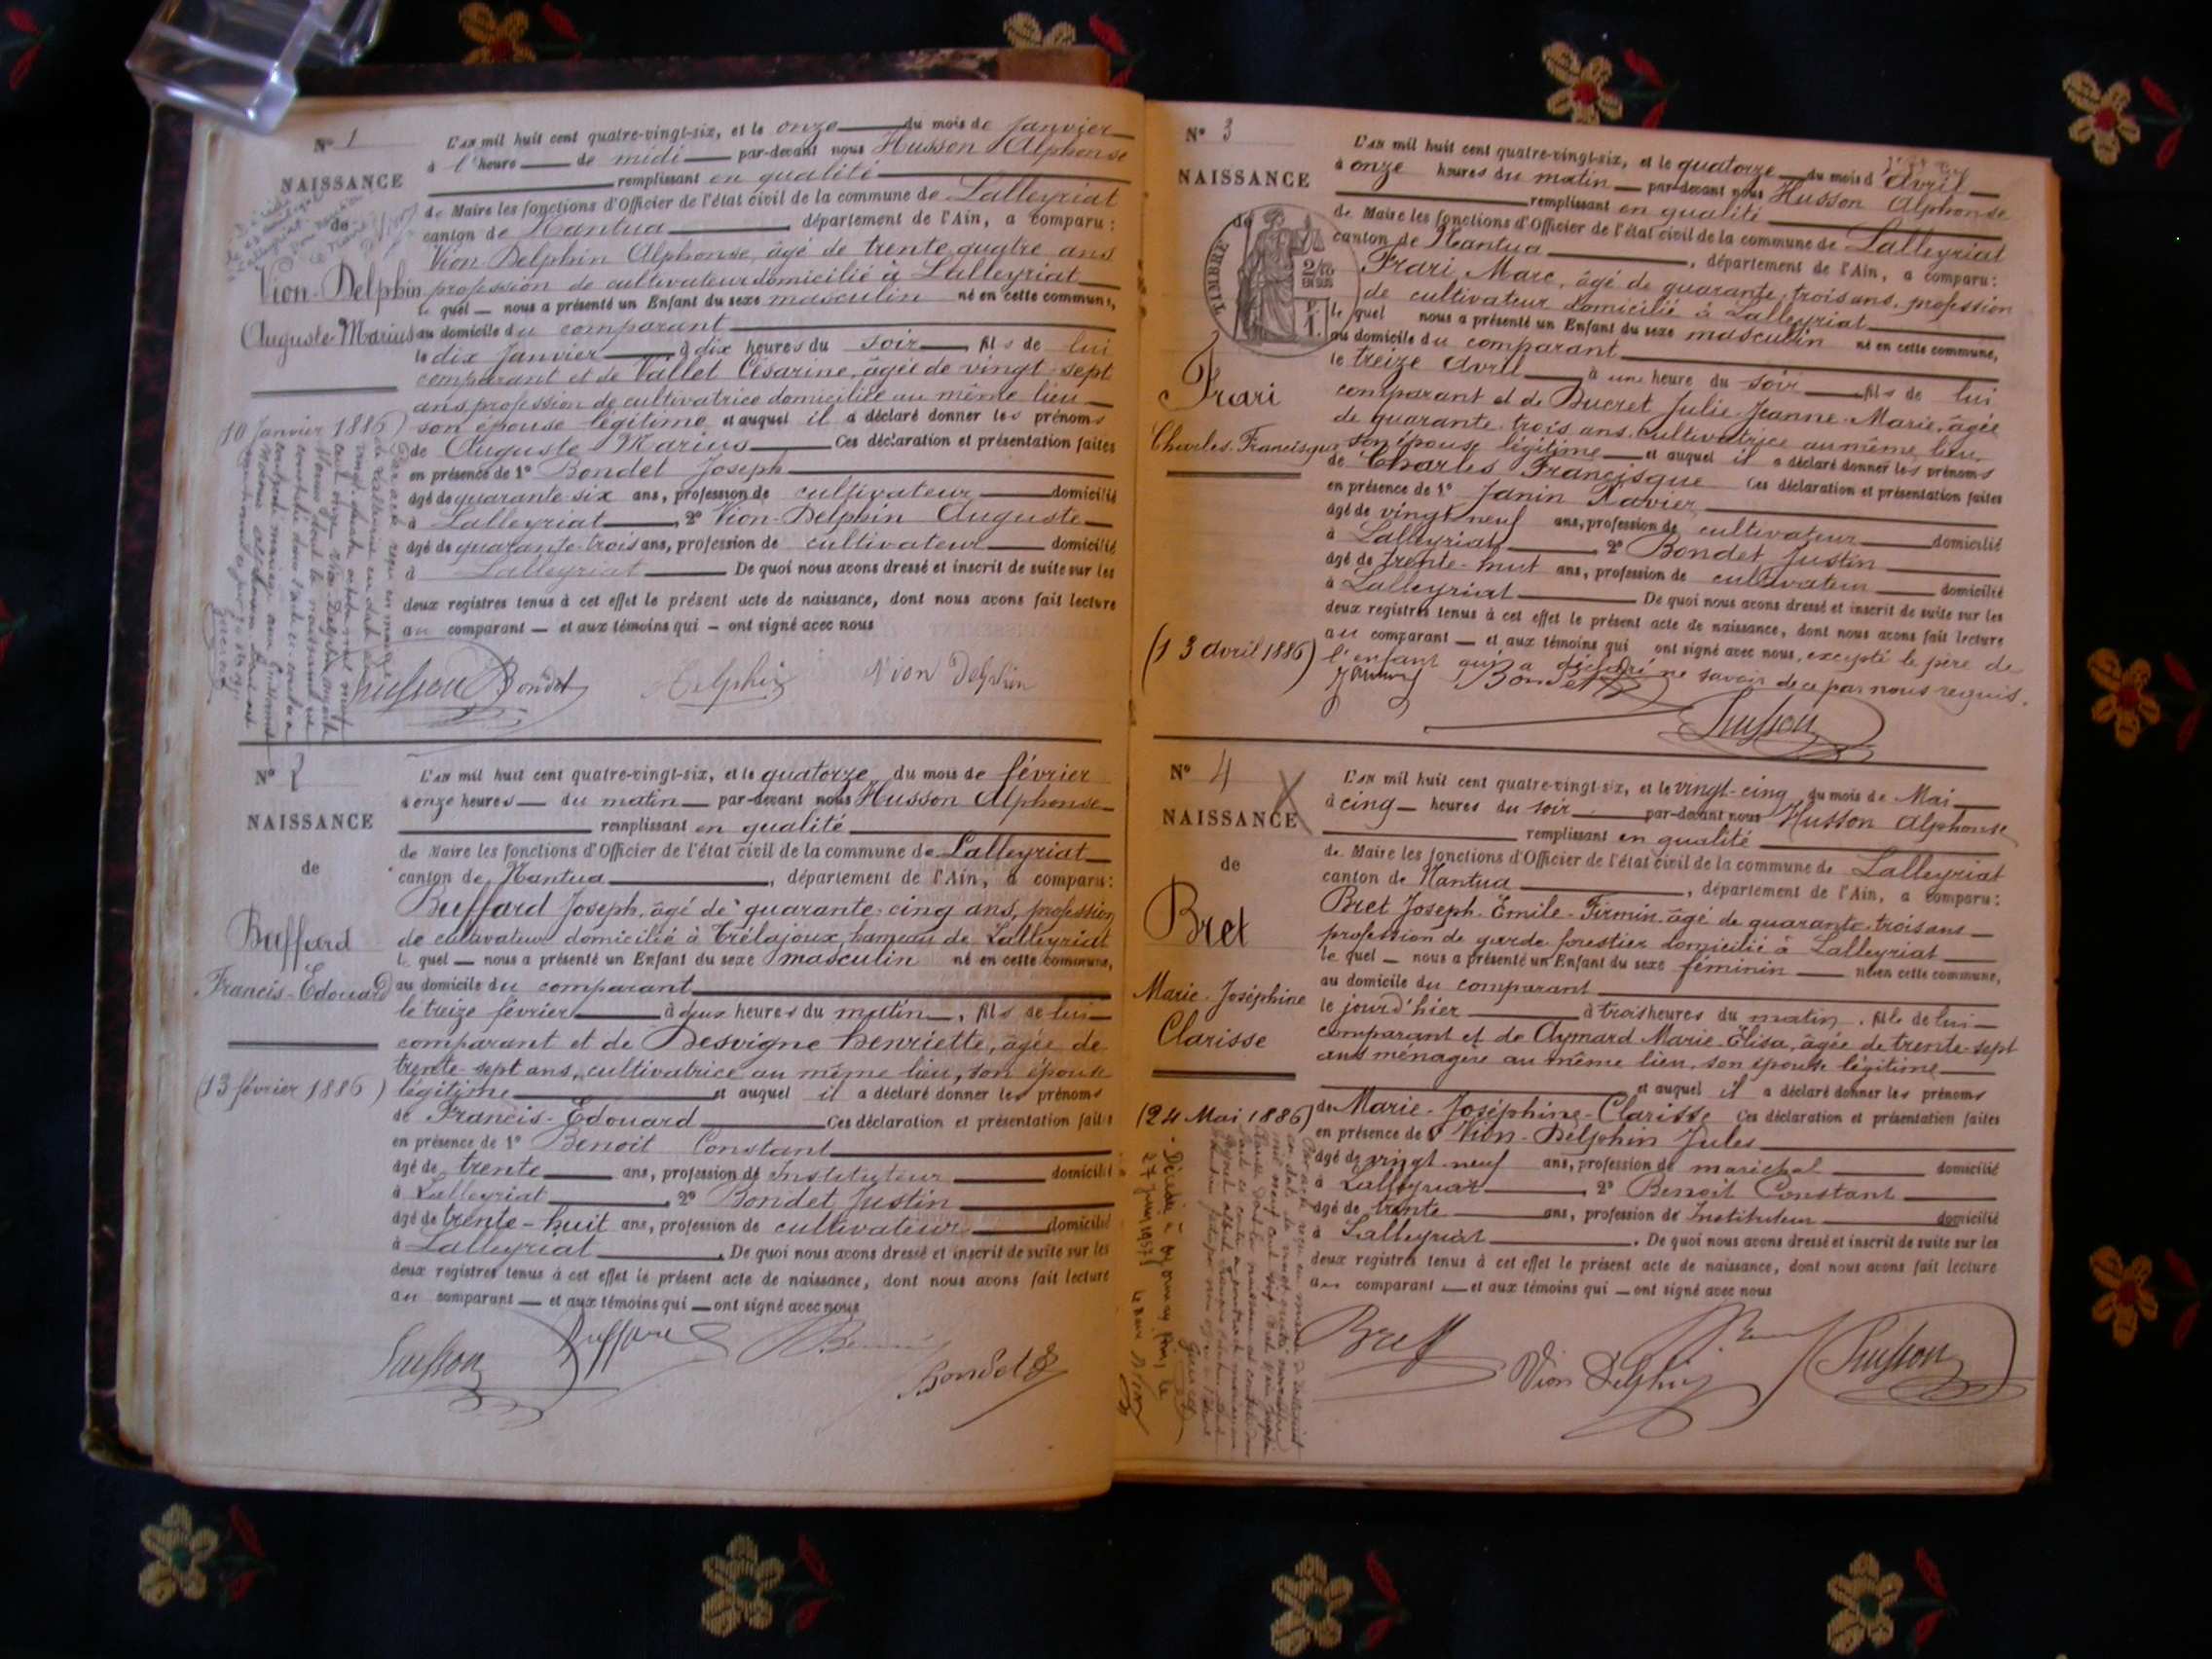 N° 1
NAISSANCE
de
Vion-Delphin
Auguste-Marius
10 Janvier 1886)
L'AN mil huit cent quatre-vingt-six, et le onze du mois de Janvier
à l'heure de midi par-devant nous Husson Alphonse
remplissant en qualité
de Maire les fonctions d'Officier de l'état civil de la commune de Lalleyriat
canton de Nantua, département de l'Ain, a comparu:
Vion-Delphin Alphonse, âgé de trente-quatre ans
profession de cultivateur domicilié à Lalleyriat
lequel nous a présenté un Enfant du sexe masculin né en cette commune,
au domicile du comparant
le dix Janvier à dix heures du soir, fils de lui
comparant et de Vallet Césarine, âgée de vingt-sept
ans profession de cultivatrice domiciliée au même lieu
son épouse légitime et auquel il a déclaré donner les prénoms
de Auguste Marius Ces déclaration et présentation faites
en présence de 1° Bondet Joseph
âgé de quarante-six ans, profession de cultivateur domicilié
à Lalleyriat, 2° Vion-Delphin Auguste
âgé de quarante-trois ans, profession de cultivateur domicilié
à Lalleyriat De quoi nous avons dressé et inscrit de suite sur les
deux registres tenus à cet effet le présent acte de naissance, dont nous avons fait lecture
au comparant et aux témoins qui ont signé avec nous
Husson Bondet Delphin Vion Delphin
N° 2
NAISSANCE
de
Buffard
Francis-Edouard
(13 février 1886)
L'AN mil huit cent quatre-vingt-six, et le quatorze du mois de février
à onze heures du matin par-devant nous Husson Alphonse
remplissant en qualité
de Maire les fonctions d'Officier de l'état civil de la commune de Lalleyriat
canton de Nantua, département de l'Ain, a comparu:
Buffard Joseph, âgé de quarante-cinq ans, profession
de cultivateur domicilié à Trélajoux, hameau de Lalleyriat
lequel nous a présenté un Enfant du sexe masculin né en cette commune,
au domicile du comparant
le treize février à deux heures du matin, fils de lui
comparant et de Desvigne Henriette, âgée de
trente-sept ans, cultivatrice au même lieu, son épouse
légitime et auquel il a déclaré donner les prénoms
de Francis-Edouard Ces déclaration et présentation faites
en présence de 1° Benoit Constant
âgé de trente ans, profession de Instituteur domicilié
à Lalleyriat, 2° Bondet Justin
âgé de trente-huit ans, profession de cultivateur domicilié
à Lalleyriat. De quoi nous avons dressé et inscrit de suite sur les
deux registres tenus à cet effet le présent acte de naissance, dont nous avons fait lecture
au comparant et aux témoins qui ont signé avec nous
Husson Buffard Bondet
N° 3
NAISSANCE
de
TIMBRE
2/10
EN SUS
Frari
Charles-Francisque
(13 avril 1886)
L'AN mil huit cent quatre-vingt-six, et le quatorze du mois d'Avril
à onze heures du matin par-devant nous Husson Alphonse
remplissant en qualité
de Maire les fonctions d'Officier de l'état civil de la commune de Lalleyriat
canton de Nantua, département de l'Ain, a comparu:
Frari Marc, âgé de quarante-trois ans, profession
de cultivateur domicilié à Lalleyriat
lequel nous a présenté un Enfant du sexe masculin né en cette commune,
au domicile du comparant
le treize Avril à une heure du soir fils de lui
comparant et de Ducret Julie-Jeanne-Marie, âgée
de quarante-trois ans, cultivatrice au même lieu,
son épouse légitime et auquel il a déclaré donner les prénoms
de Charles Francisque Ces déclaration et présentation faites
en présence de 1° Janin Xavier
âgé de vingt neuf ans, profession de cultivateur domicilié
à Lalleyriat 2° Bondet Justin
âgé de trente-huit ans, profession de cultivateur domicilié
à Lalleyriat De quoi nous avons dressé et inscrit de suite sur les
deux registres tenus à cet effet le présent acte de naissance, dont nous avons fait lecture
au comparant et aux témoins qui ont signé avec nous, excepté le père de
l'enfant qui a déclaré ne savoir de ce par nous requis.
Bondet
Husson
N° 4
NAISSANCE
de
Bret
Marie-Joséphine
Clarisse
(24 Mai 1886)
L'AN mil huit cent quatre-vingt-six, et le vingt-cinq du mois de Mai
à cinq heures du soir par-devant nous Husson Alphonse
remplissant en qualité
de Maire les fonctions d'Officier de l'état civil de la commune de Lalleyriat
canton de Nantua, département de l'Ain, a comparu:
Bret Joseph-Emile-Firmin, âgé de quarante-trois ans
profession de garde-forestier domicilié à Lalleyriat
lequel nous a présenté un Enfant du sexe féminin né en cette commune,
au domicile du comparant
le jour d'hier à trois heures du matin, fille de lui
comparant et de Aymard Marie-Elisa, âgée de trente-sept
ans ménagère au même lieu, son épouse légitime
et auquel il a déclaré donner les prénoms
de Marie-Joséphine-Clarisse Ces déclaration et présentation faites
en présence de 1° Vion-Delphin Jules
âgé de vingt neuf ans, profession de maréchal domicilié
à Lalleyriat, 2° Benoit Constant
âgé de trente ans, profession de Instituteur domicilié
à Lalleyriat. De quoi nous avons dressé et inscrit de suite sur les
deux registres tenus à cet effet le présent acte de naissance, dont nous avons fait lecture
au comparant et aux témoins qui ont signé avec nous
Bret Vion Delphin Husson